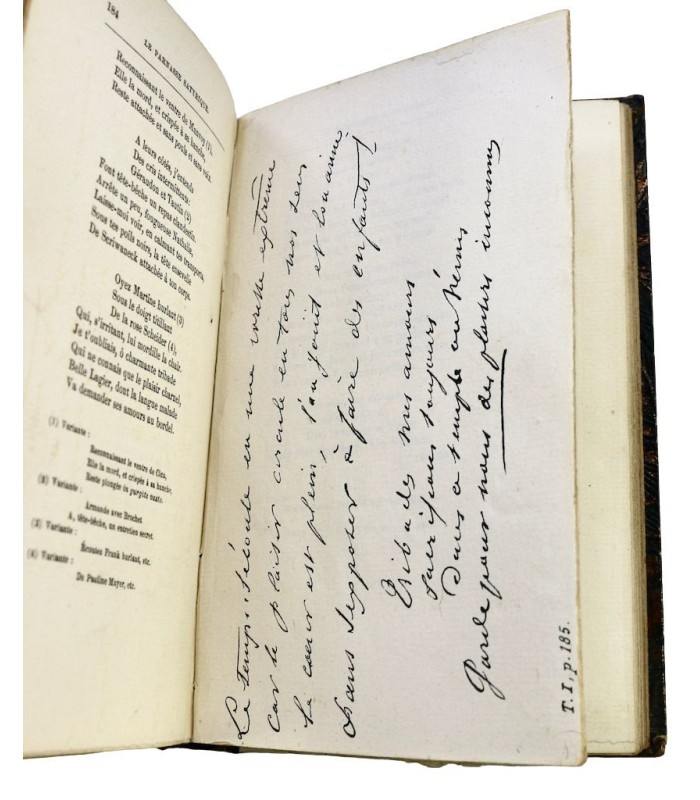 184
LE PARNASSE SATYRIQUE.
Reconnaissant le ventre de Massoy (1),
Elle la mord, et crispée à sa hanche,
Reste attachée et sans pouls et sans voix.
A leurs côtés, j'entends
Des cris intermittents :
Géraudon et Tautin (2)
Font tête-bêche un repas clandestin.
Arrête un peu, fougueuse Nathalie,
Laisse-moi voir, en calmant tes transports,
Sous tes poils noirs, la tête ensevelie
De Scriwaneck attachée à ton corps.
Oyez Martine hurlant (3)
Sous le doigt titillant
De la rose Scheider (4),
Qui, s'irritant, lui mordille la chair.
Je t'oubliais, ô charmante tribade
Qui ne connais que le plaisir charnel,
Belle Lagier, dont la langue malade
Va demander ses amours au bordel.
(1) Variante :
Reconnaissant le ventre de Cico,
Elle la mord, et crispée à sa hanche,
Reste plongée in gurgite vasto.
(2) Variante :
Armande avec Brochet
A, tête-bêche, un entretien secret.
(3) Variante :
Écoutez Frank hurlant, etc.
(4) Variante :
De Pauline Mayer, etc.
Le temps s'écoule en une volupté extrême
car le plaisir circule en tous nos sens
Le cœur est plein, l'on jouit et l'on aime
Sans s'exposer à faire des enfants !
Tribades mes amours
Sacrifions toujours
Dans ce temple où Vénus
Garde pour nous des plaisirs inconnus
T. I, p. 185.